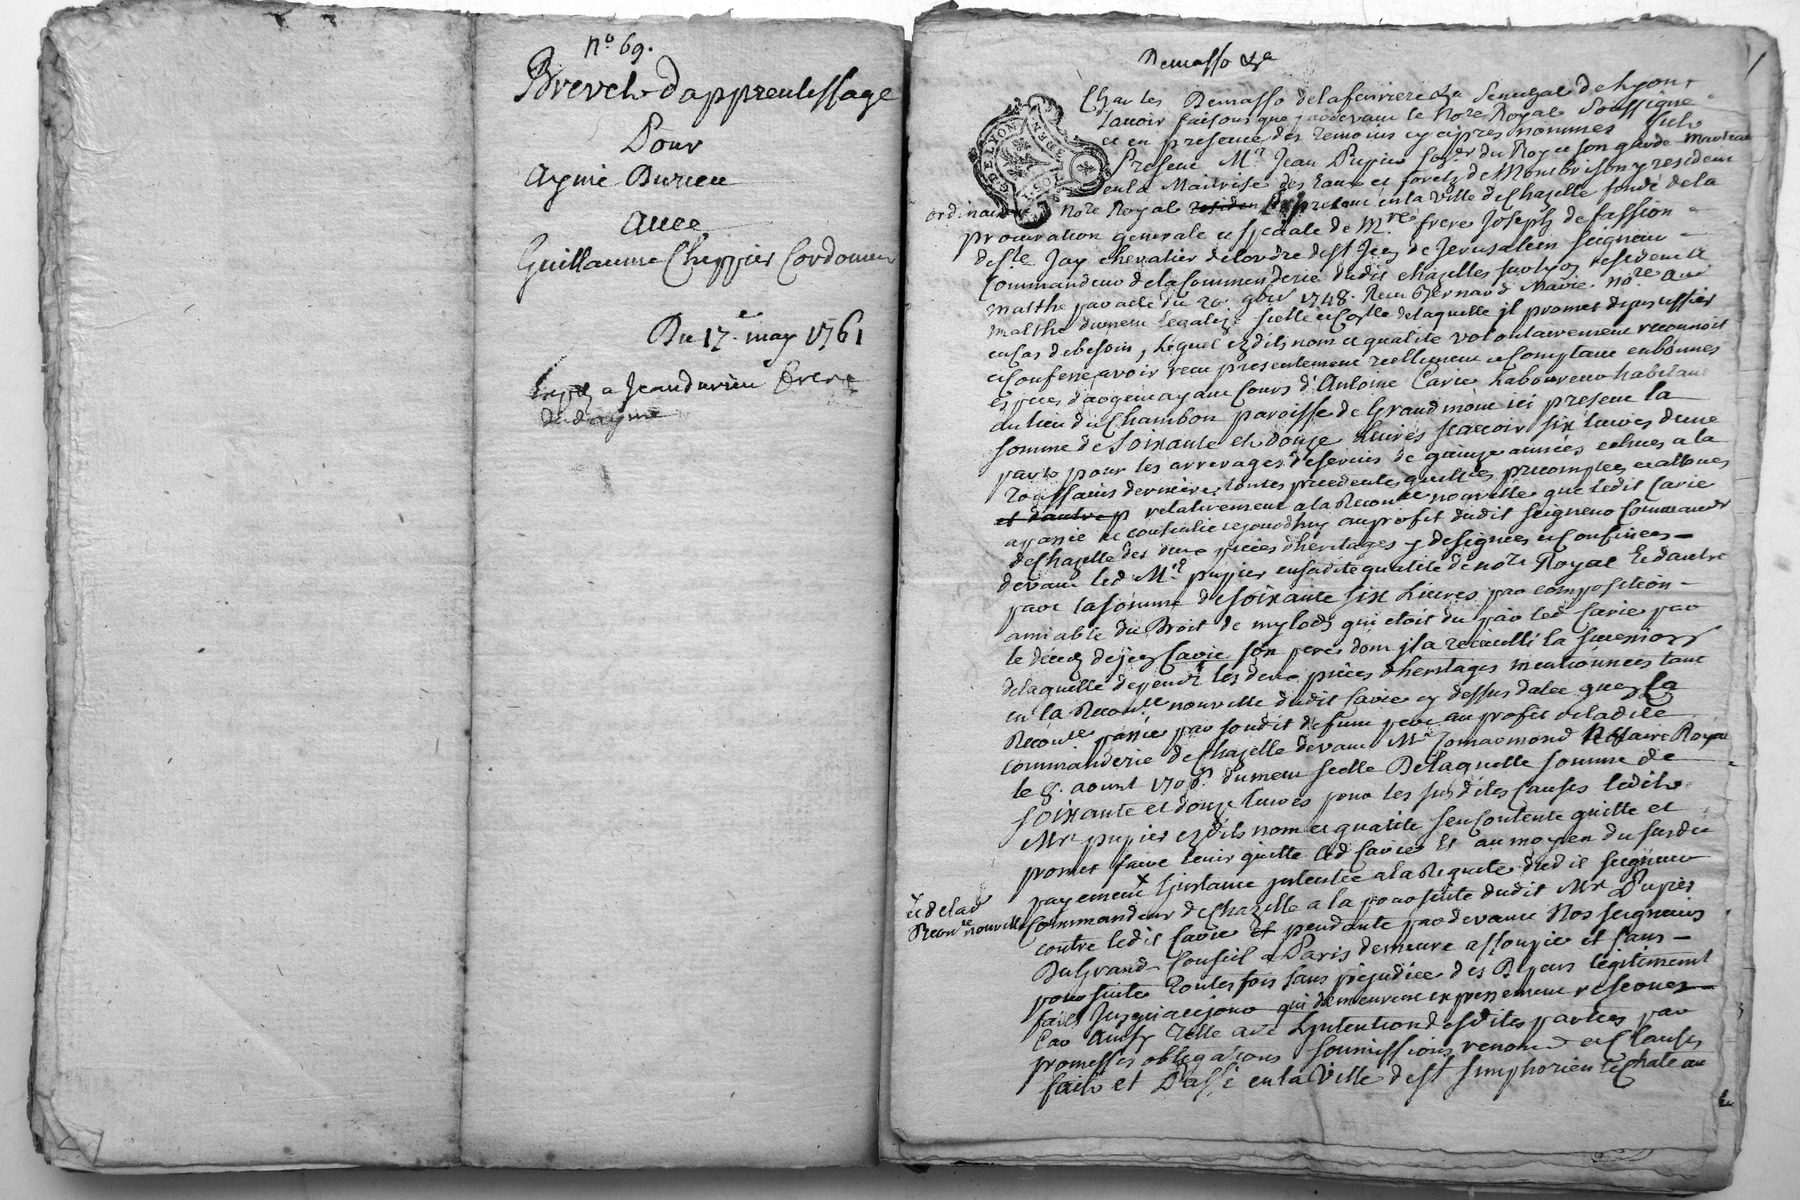 n° 69.
Brevet d'apprentissage
Pour
Aymé Durieu
avec
Guillaume Chuppier Cordonnier
Du 17e may 1761
a Jean durieu frere
dud ayme
Demasso &a
Charles Demasso de la ferriere &a Senechal de Lyon
scavoir faisons que pardevant le No.re Royal Soussigné
et en presence des temoins cy apres nommés fut
Present Mr. Jean Pupier du Roy en son garde marteau
en la Maitrise des Eaux et foretz de Montbrison y resident
ordinairement No.re Royal en la ville de Chazelle fondé de la
procuration generale et speciale de M.re frere Joseph de fassion
de Ste Jay chevalier de l'ordre de St Jean de Jerusalem Seigneur
Commandeur de la Commanderie dudit chazelles sur lyon resident a
malthe par acte du 20. 9bre 1748. Recu Bernard Marie no.re aud
malthe dument legalizé scellé de laquelle il promet
en cas de besoin, lequel esdits nom et qualité volontairement reconnoit
et confesse avoir reçu presentement reellement et comptant en bonnes
especes d'argent ayant cours d'Antoine Carie Laboureur habitant
au lieu du Chambon paroisse de Grandmont ici present la
somme de Soixante et douze Livres scavoir six livres d'une
part pour les arrerages de servis de quinze années echues a la
Toussaints derniere, toutes precedentes quittées precomptees et allouees
et d'autre p relativement a la Recon.ce nouvelle que ledit Carie
a passée et consentie cejourdhuy au profit dudit seigneur Commandeur
de Chazelle des deux pieces d'heritages y designées et confinées
devant led Mr. pupier en sadite qualité de no.re Royal Et d'autre
part la somme de soixante six Livres par composition
amiable du Droit de mylods qui etoit du par led Carie par
le decez de Jean Carie son pere dont jl a recueilli la succession
de laquelle dependt les deux pieces d'heritages mentionnées tant
en la Recon.ce nouvelle dudit Carie cy dessus datée qu'en la
Recon.ce passée par sondit defunt pere au profit de ladite
commanderie de Chazelle devant Mr Notaire Royal
le 8. aoust dument scelle De laquelle somme de
soixante et douze livres pour les susdites causes ledit
Mr pupier esdits nom et qualité s'en contente quitte et
promet faire tenir quitte led Carie Et au moyen du susdit
payement x l'instance intentée a la Requete dudit seigneur
Et de lad
Recon.ce nouvelle
Commandeur de Chazelle a la poursuite dudit Mr Pupier
contre ledit Carie et pendante pardevant Nos seigneurs
Du Grand Conseil a Paris demeure assoupie et sans
poursuite toutes fois sans prejudice des Depens legitimement
faits jusqu'a ce jour qui demeurent expressement reservez
Car ainsy telle a été L'intention desdites parties par
promesses obligations soumissions renon.ons et clauses
fait et Passé en la Ville de St simphorien le chateau